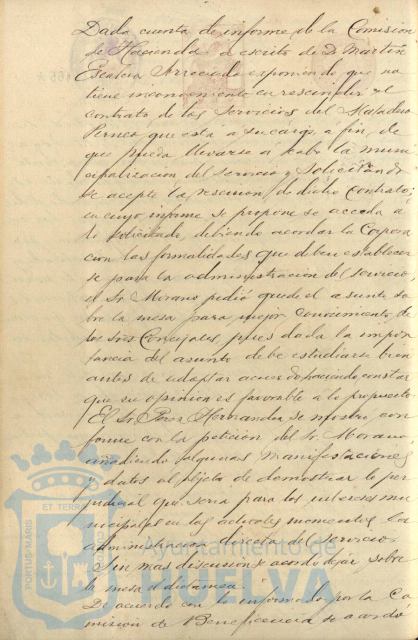 Dada cuenta de informe de la Comision
de Hacienda a escrito de D. Martin
Escalera Arreciado exponiendo que no
tiene inconveniente en rescindir el
contrato de los Servicios del Matadero
que esta a su cargo a fin de
que pueda llevarse á cabo la muni
cipalizacion del servicio y solicitando
se acepte la rescision de dicho contrato;
en cuyo informe se propone se acceda a
lo solicitado, debiendo acordar la Corpora
cion las formalidades que deben establecer
se para la administracion del servicio,
el Sr. Morano pidió quede el asunto so
bre la mesa para mejor conocimiento de
los Sres Concejales, pues dada la impor
tancia del asunto debe estudiarse bien
antes de adoptar acuerdo haciendo constar
que su opinion es favorable a lo propuesto.
El Sr. Perez Hernandez se mostro con
forme con la peticion del Sr. Morano
añadiendo algunas manifestaciones
y datos al objeto de demostrar lo per
judicial que seria para los intereses mu
nicipales en los actuales momentos la
administracion directa del servicio.
Sin mas discusion se acordo dejar sobre
la mesa el dictamen.
De acuerdo con lo informado por la Co
mision de Beneficencia se acordo
PORTUS MARIS
ET TERRÆ
Ayuntamiento de
HUELVA